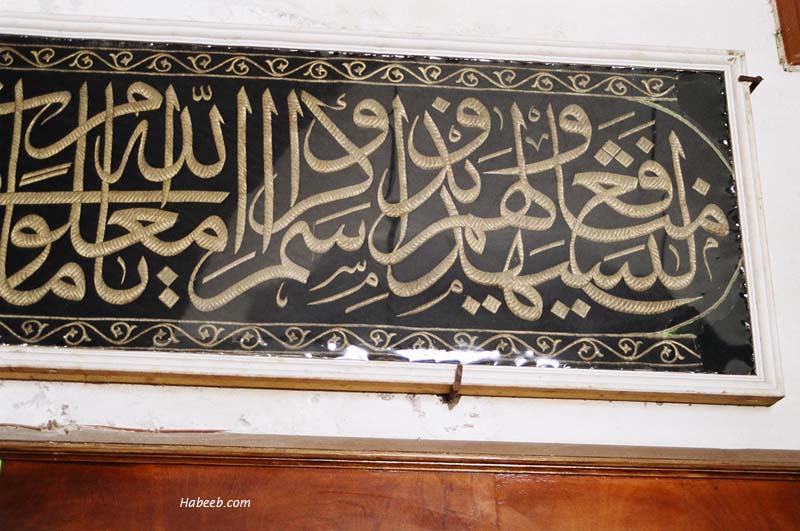 ليشهدوا منافع لهم ويذكروا اسم الله
في أيام معلومات
Habeeb.com